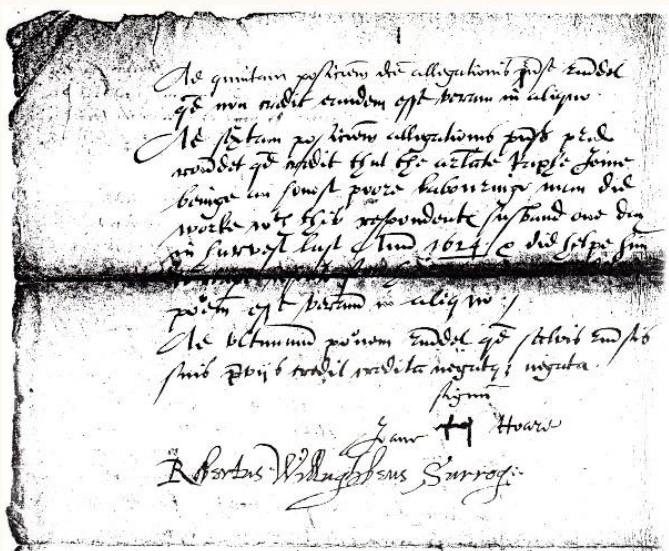 Ad quintam posicoem dce allegationis rndet
qd non credit eandem esse veram in aliquo.
Ad sextam posicoem allegationis pred
rondet qd credit that the arlate Raphe Jenne
beinge an honest poore labouringe man did
worke wth this respondents husband one day
in harvest last Anno 1624 & did helpe him
poem esse veram in aliquo./
Ad ultimam poem rndet qd salvis rnsis
suis pviis credit credita negatq negata.
signu
Joane Hoare
Robertus Willughbeus Surrog: